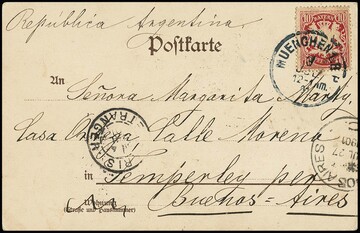 República Argentina
Postkarte
BAYERN
MUENCHEN
12-
An
Señora Margarita
Casa Calle Moreno
PARIS
ETRANGER
in Temperley per
Buenos-Aires
BUENOS AIRES
Wohnung
(Straße und Hausnummer)